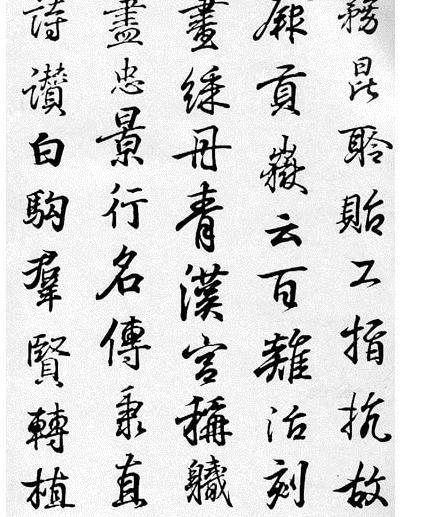 務昆聆貽工指抗故
貢嶽云百難治刻
畫綵丹青漢宮稱軄
盡忠景行名傳秉直
詩讚白駒羣賢轉植